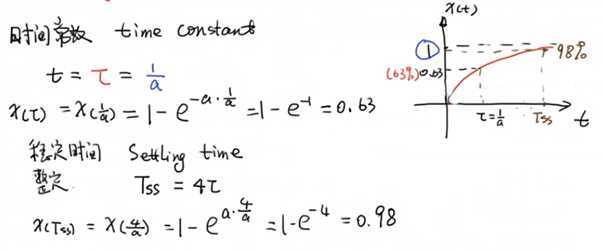 时间常数 time constant
t = τ = 1/a
x(τ) = x(1/a) = 1 - e^{-a·1/a} = 1 - e^{-1} = 0.63
稳定时间 Settling time
整定 Tss = 4τ
x(Tss) = x(4/a) = 1 - e^{a·4/a} = 1 - e^{-4} = 0.98
x(t)
1
98%
(63%) 0.63
τ = 1/a
Tss
t